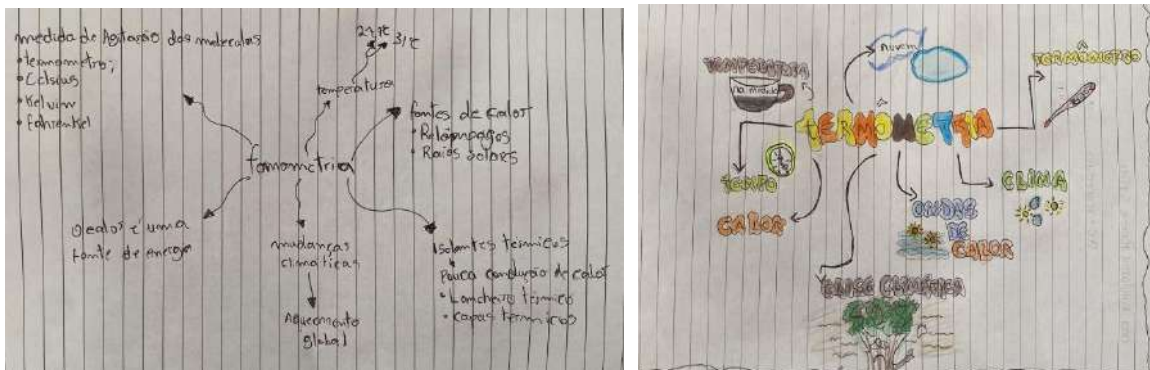 medida de Agitação das moleculas
• termometro;
• Celsius
• Kelvin
• Fahrenheit
temperatura
fontes de calor
• Relâmpagos
• Raios solares
mudanças
climáticas
Aquecimento
global
Isolantes térmicos
Pouca condução de calor
• Lancheira térmica
• Capas termicas
TEMPERATURA
nuvem
TERMÔMETRO
TERMOMETRIA
TEMPO
CALOR
ONDAS
DE
CALOR
CLIMA